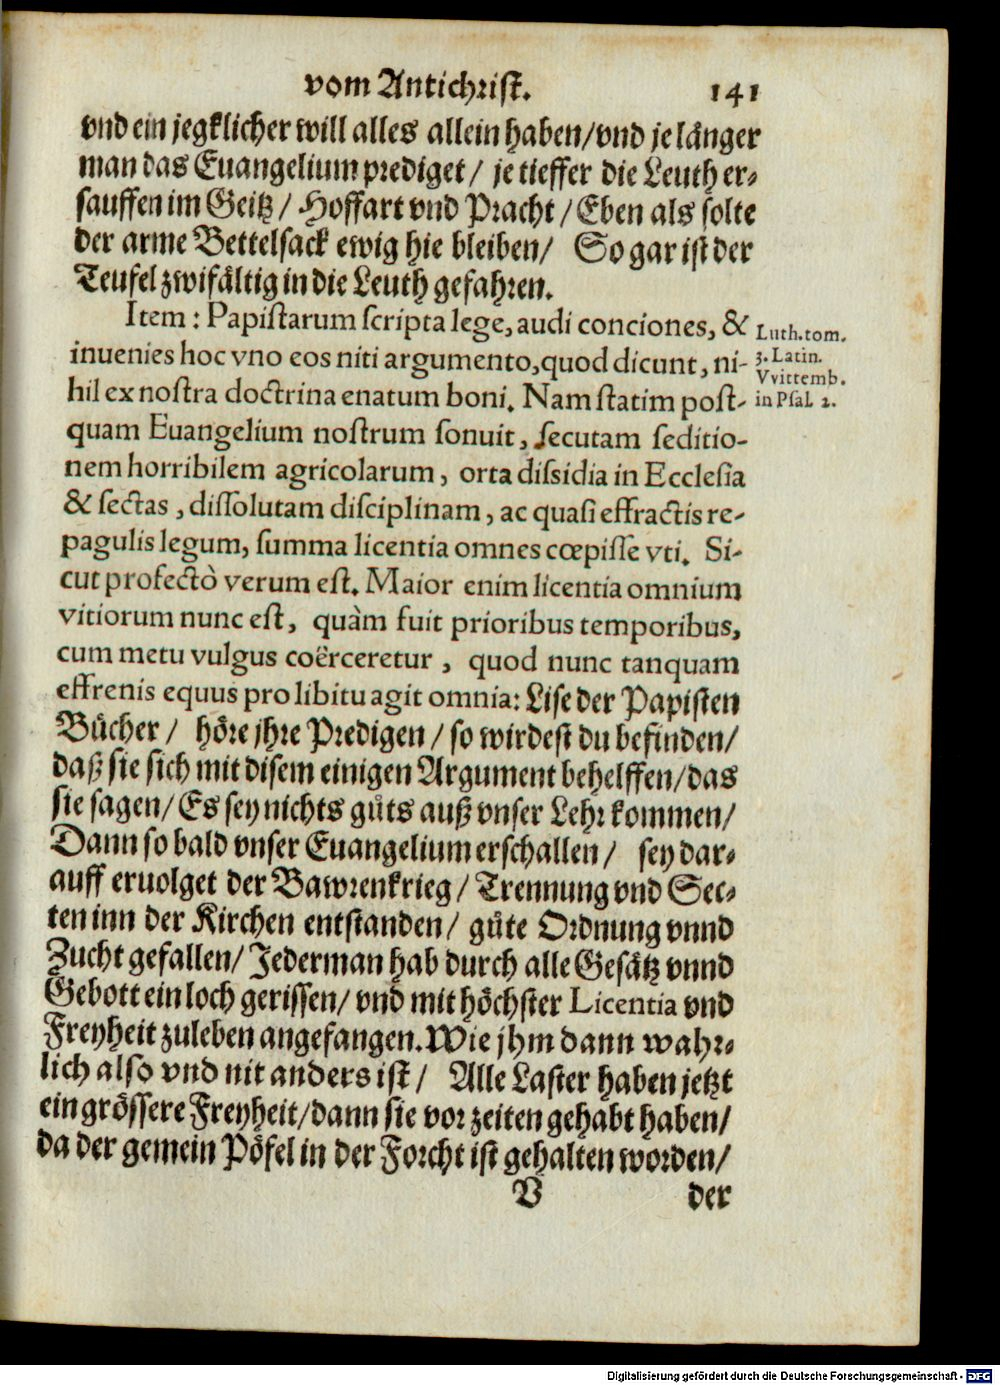 vom Antichrist. 141
vnd ein jegklicher will alles allein haben/vnd je långer
man das Euangelium prediget/ je tieffer die Leuth er-
sauffen im Geitz/ Hoffart vnd Pracht/Eben als solte
der arme Bettelsack ewig hie bleiben/ So gar ist der
Teufel zwifåltig in die Leuth gefahren.
Item: Papistarum scripta lege, audi conciones, &
Luth. tom.
inuenies hoc vno eos niti argumento, quod dicunt, ni-
3. Latin.
Vvittemb.
hil ex nostra doctrina enatum boni. Nam statim post-
in Psal. 2.
quam Euangelium nostrum sonuit, secutam seditio-
nem horribilem agricolarum, orta dissidia in Ecclesia
& sectas, dissolutam disciplinam, ac quasi effractis re-
pagulis legum, summa licentia omnes cœpisse vti. Si-
cut profectò verum est. Maior enim licentia omnium
vitiorum nunc est, quàm fuit prioribus temporibus,
cum metu vulgus coërceretur, quod nunc tanquam
effrenis equus pro libitu agit omnia: Lise der Papisten
Bůcher/ hôre jhre Predigen/ so wirdest du befinden/
daß sie sich mit disem einigen Argument behelffen/das
sie sagen/Es sey nichts gůts auß vnser Lehr kommen/
Dann so bald vnser Euangelium erschallen/ sey dar-
auff eruolget der Bawrenkrieg/ Trennung vnd Sec-
ten inn der Kirchen entstanden/ gůte Ordnung vnnd
Zucht gefallen/ Jederman hab durch alle Gesåtz vnnd
Gebott ein loch gerissen/ vnd mit hôchster Licentia vnd
Freyheit zuleben angefangen. Wie jhm dann wahr-
lich also vnd nit anders ist/ Alle Laster haben jetzt
ein grôssere Freyheit/dann sie vor zeiten gehabt haben/
da der gemein Pôfel in der Forcht ist gehalten worden/
V der
Digitalisierung gefördert durch die Deutsche Forschungsgemeinschaft - DFG